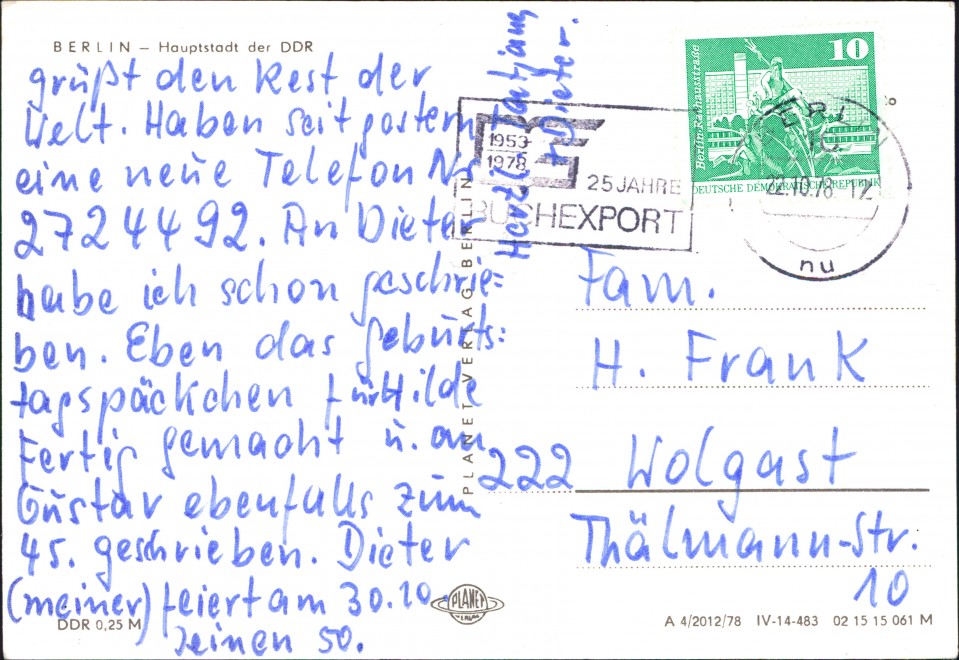 BERLIN – Hauptstadt der DDR
grüßt den Rest der
Welt. Haben seit gestern
eine neue Telefon Nr.
2724492. An Dieter
habe ich schon geschrie=
ben. Eben das Geburts:
tagspäckchen für Hilde
fertig gemacht u. an
Gustav ebenfalls zum
45. geschrieben. Dieter
(meiner) feiert am 30.10.
seinen 50.
Herzlichst
+ Dieter.
DDR 0,25 M
PLANET VERLAG BERLIN
PLANET
VERLAG
1953
1978
25 JAHRE
BUCHEXPORT
10
Berlin, Rathausstraße
DEUTSCHE DEMOKRATISCHE REPUBLIK
22.10.78 12
nu
Fam.
H. Frank
222 Wolgast
Thälmann-Str.
10
A 4/2012/78 IV-14-483 02 15 15 061 M